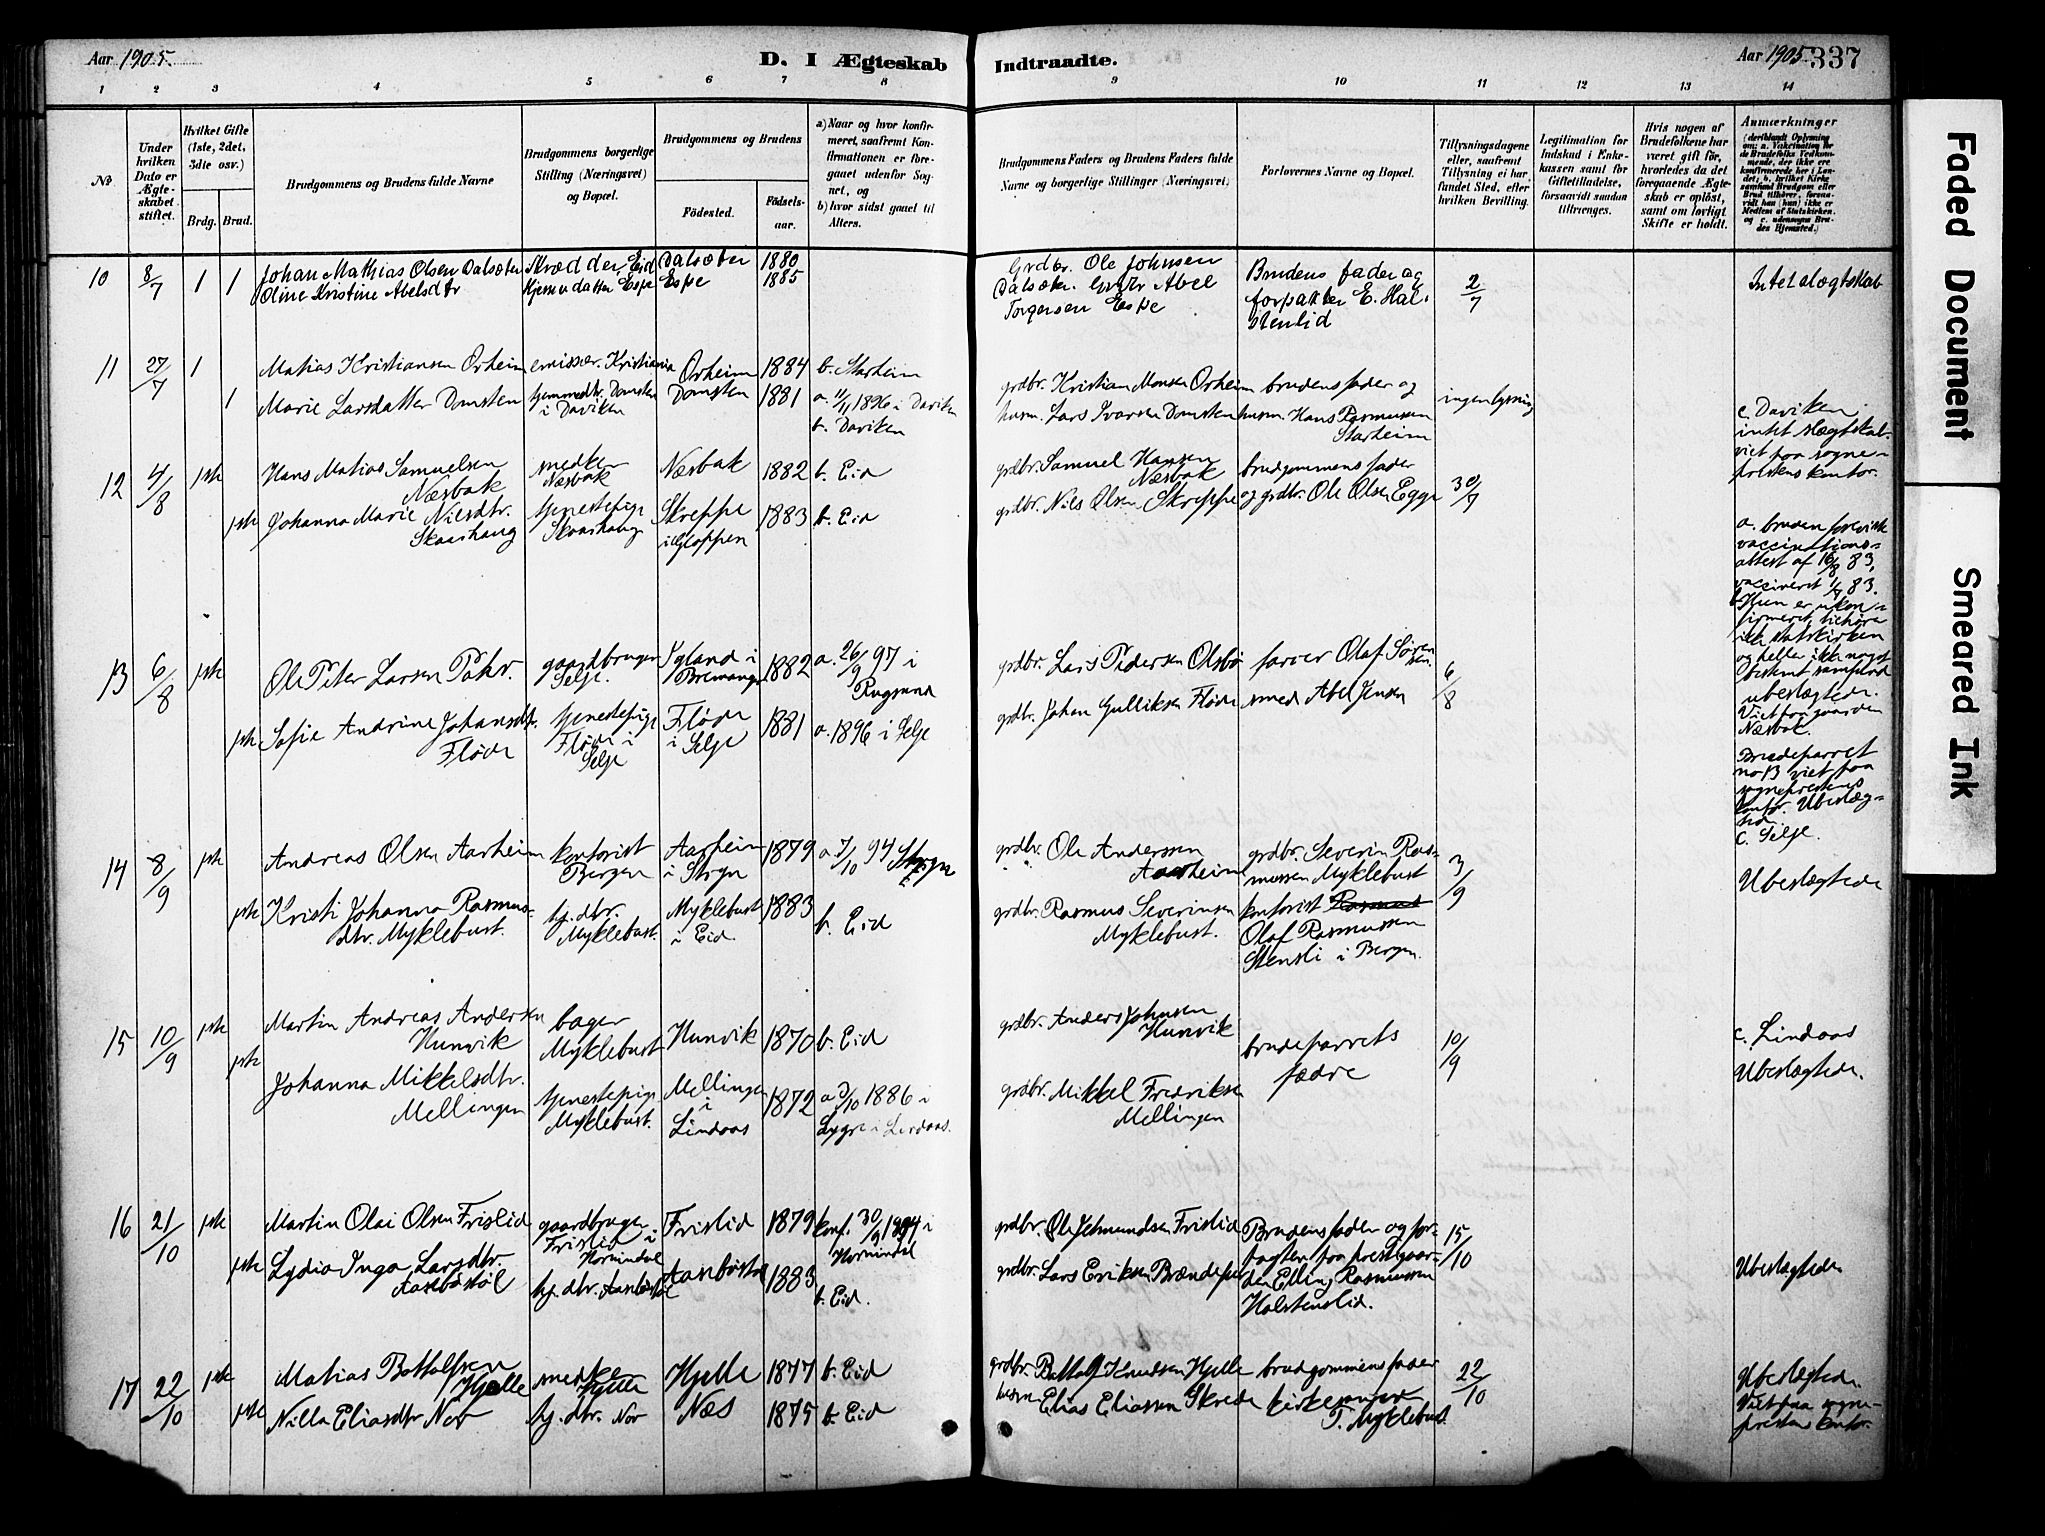 Aar 1905.
D. I Ægteskab Indtraadte.
Aar 1905 337
1 2 3 4 5 6 7 8 9 10 11 12 13 14
No.
Under hvilken Dato er Ægteskabet stiftet.
Hvilket Gifte (1ste, 2det, 3die osv.)
Brdg. Brud.
Brudgommens og Brudens fulde Navne
Brudgommens borgerlige Stilling (Næringsvei) og Bopæl.
Brudgommens og Brudens
Födested.
Födsels-aar.
a) Naar og hvor konfirmeret, saafremt Konfirmationen er foregaaet udenfor Sognet, og
b) hvor sidst gaaet til Alters.
Brudgommens Faders og Brudens Faders fulde Navne og borgerlige Stillinger (Næringsvei)
Forlovernes Navne og Bopæl.
Tillysningsdagene eller, saafremt Tillysning ei har fundet Sted, efter hvilken Bevilling.
Legitimation for Indskud i Enkekassen samt for Giftetilladelse, forsaavidt saadan tiltrænges.
Hvis nogen af Brudefolkene har været gift för, hvorledes da det foregaaende Ægteskab er oplöst, samt om lovligt Skifte er holdt.
Anmærkninger
10 8/7 1 1 Johan Mathias Olsen Dalsæter Skrædder, Eid Dalsæter 1880
Oline Kristine Abelsdtr Hjemmedatter Espe Espe 1885
Grdbr. Ole Johnsen Dalsæter. Grdbr Abel Torgersen Espe
Brudens fader og forpakter E. Halstenlid
2/7
Intet slægtskab
11 27/7 1 Matias Kristiansen Orheim emissær. Kristiania Orheim 1884 b. Starheim
1 Marie Larsdatter Domsten hjemmedtr. Domsten i Daviken Domsten 1881 a. 11/11 1896 i Daviken
b. Daviken
grdbr. Kristian Monsen Orheim
husm. Lars Ivarsen Domsten
brudens fader og
husm. Hans Rasmussen Starheim
ingen lysning
c. Daviken.
intet slægtskab.
viet paa sogneprestens kontor.
12 4/8 1ste Hans Matias Samuelsen Næsbak snedker Næsbak Næsbak 1882 b. Eid
1ste Johanna Marie Nilsdtr. Skaashaug tjenestepige Skaashaug Skreppe i Gloppen 1883 b. Eid
grdbr. Samuel Hansen Næsbak
grdbr. Nils Olsen Skreppe
brudgommens fader
og grdbr. Ole Olsen Egge
30/7
a. bruden foreviste vaccinations-attest af 16/8 83, vaccineret 1/7 83.
b. Hun er ukonfirmeret, tilhører ikke statskirken og heller ikke noget bestemt samfund
ubeslægtede.
Viet paa gaarden Næsbak.
13 6/8 1ste Ole Peter Larsen gaardbruger Selje. Igland i Bremanger 1882 a. 26/9 97 i Rugsund
1ste Sofie Andrine Johansdtr. Fløde tjenestepige Fløde i Selje Fløde i Selje 1881 a. 1896 i Selje
grdbr. Lars Pedersen Olsbø
grdbr. Johan Gulliksen Fløde
farver Olaf Sørensen.
smed Abel Jensen
6/8
Brudeparret no 13 viet paa sogneprestens kontor. Ubeslægtede.
c. Selje.
14 8/9 1ste Andreas Olsen Aarheim kontorist Bergen Aarheim i Stryn 1879 a. 7/10 94 Stryn
1ste Kristi Johanna Rasmusdtr. Myklebust. hj. dtr. Myklebust. Myklebust i Eid. 1883 b. Eid
grdbr. Ole Anderssen Aarheim
grdbr. Rasmus Severinsen Myklebust.
grdbr. Severin Rasmussen Myklebust
kontorist Olaf Rasmussen Stensli i Bergen.
3/9
Ubeslægtede
15 10/9 1ste Martin Andreas Andersen Hunvik bager Myklebust Hunvik 1870 b. Eid
1ste Johanna Mikkelsdtr. Mellingen tjenestepige Myklebust. Mellingen i Lindaas 1872 a. 3/10 1886 i Lygre i Lindaas.
grdbr. Anders Johnsen Hunvik
grdbr. Mikkel Fredriksen Mellingen
brudeparrets fædre
10/9
c. Lindaas
Ubeslægtede.
16 21/10 1ste Martin Olai Olsen Frislid gaardbruger Frislid i Hornindal Frislid 1879 konf. 30/9 1894 i Hornindal
1ste Lydia Inga Larsdtr. Aasebøstøl hj. dtr. Aasebøstøl Aasebøstøl 1883 b. Eid.
grdbr. Ole Jetmundsen Frislid
grdbr. Lars Eriksen
Brudens fader og forpagter paa prestegaarden Elling Rasmussen Halstenslid.
15/10
Ubeslægtede
17 22/10 1ste Matias Bottolfsen Hjelle snedker Hjelle Hjelle 1877 b. Eid
1ste Nilla Eliasdtr Nor hj. dtr. Nor Næs 1875 b. Eid
grdbr. Bottolf Knudsen Hjelle
husm. Elias Eliassen Skrede
brudgommens fader
kirkesanger T. Myklebust.
22/10
Ubeslægtede.
Viet paa sogneprestens kontor.
Faded Document
Smeared Ink